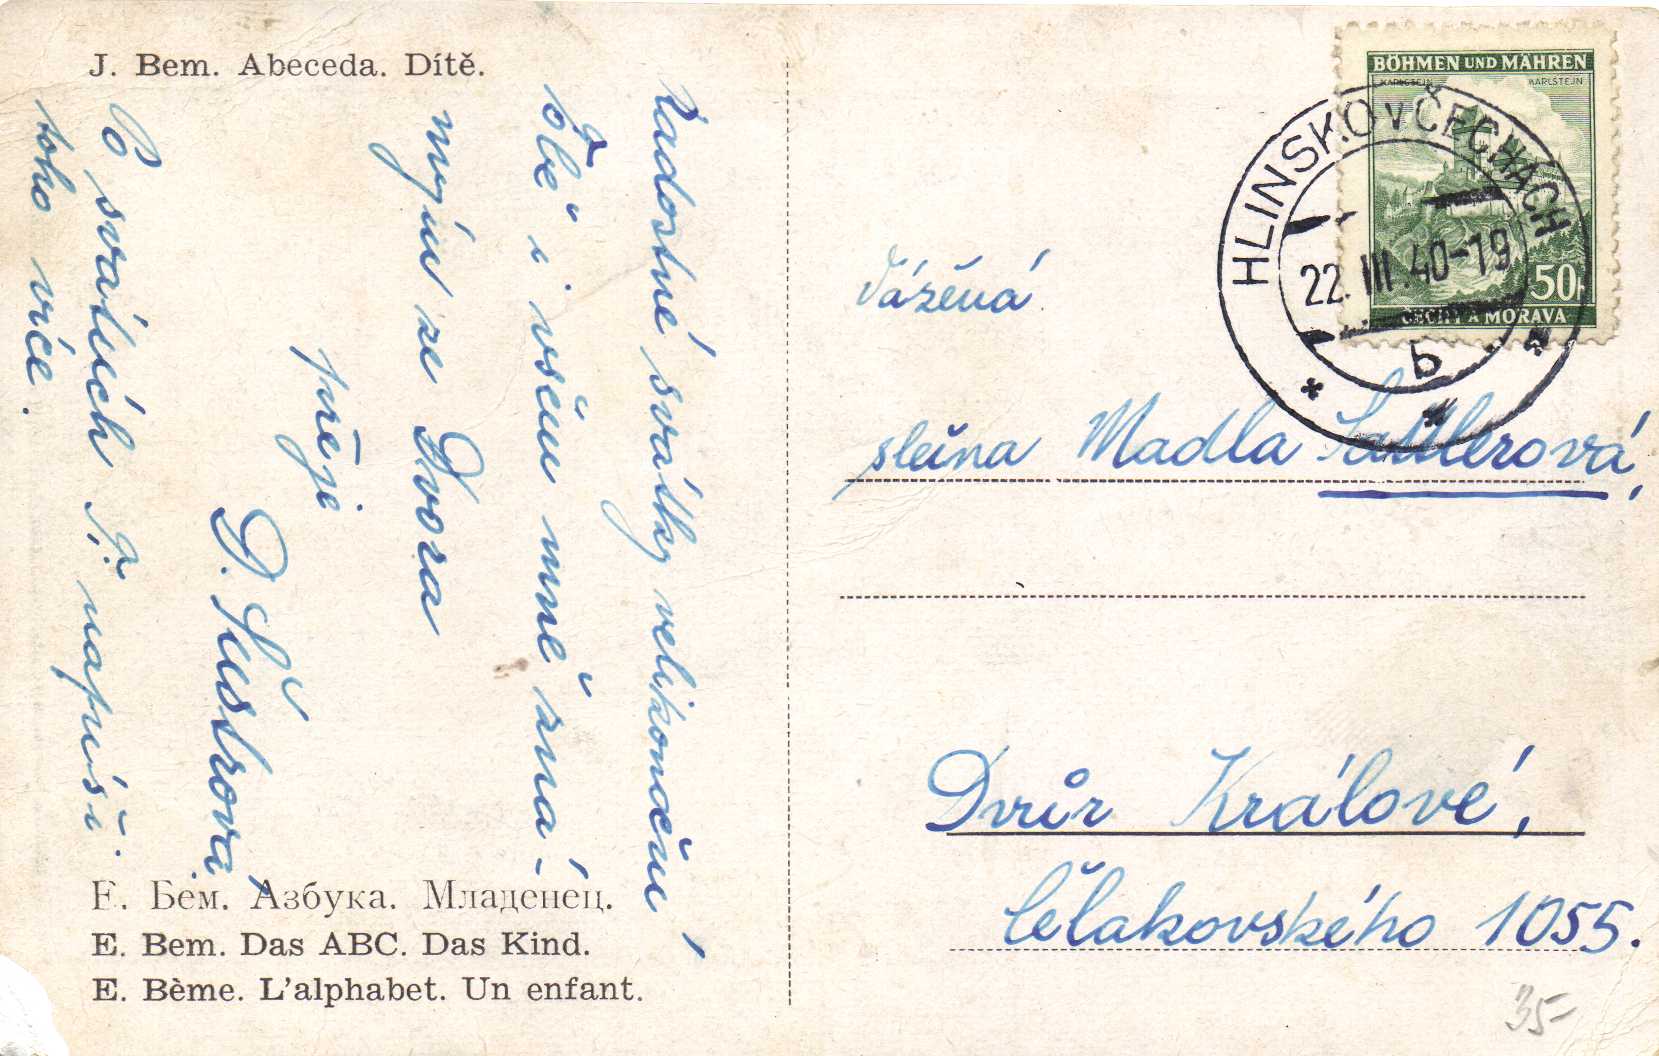 J. Bem. Abeceda. Dítě.
Radostné svátky velikonoční
Tobě i všem mně zná-
mým ze Dvora
přeje
D. Šustrová,
Po svátcích Ti napíši
toho více.
Е. Бем. Азбука. Младенец.
E. Bem. Das ABC. Das Kind.
E. Bème. L'alphabet. Un enfant.
BÖHMEN UND MÄHREN
KARLSTEIN KARLŠTEJN
50h
ČECHY A MORAVA
HLINSKO V ČECHÁCH
22. III. 40-19
b
Vážená
slečna Madla Sattlerová,
Dvůr Králové,
Čelakovského 1055.
35-